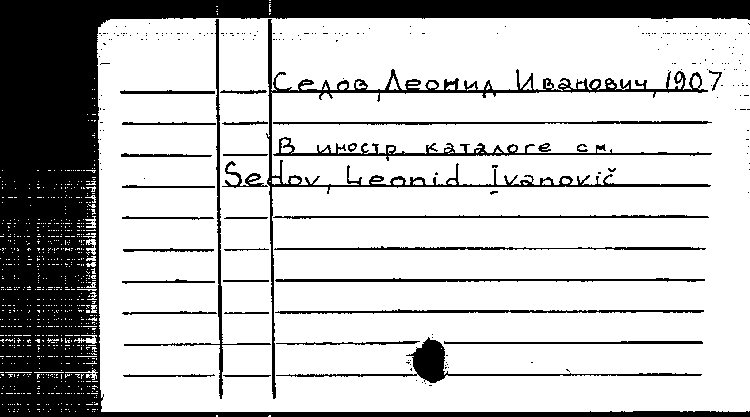 Седов, Леонид Иванович, 1907
В иностр. каталоге см.
Sedov, Leonid Ivanovič